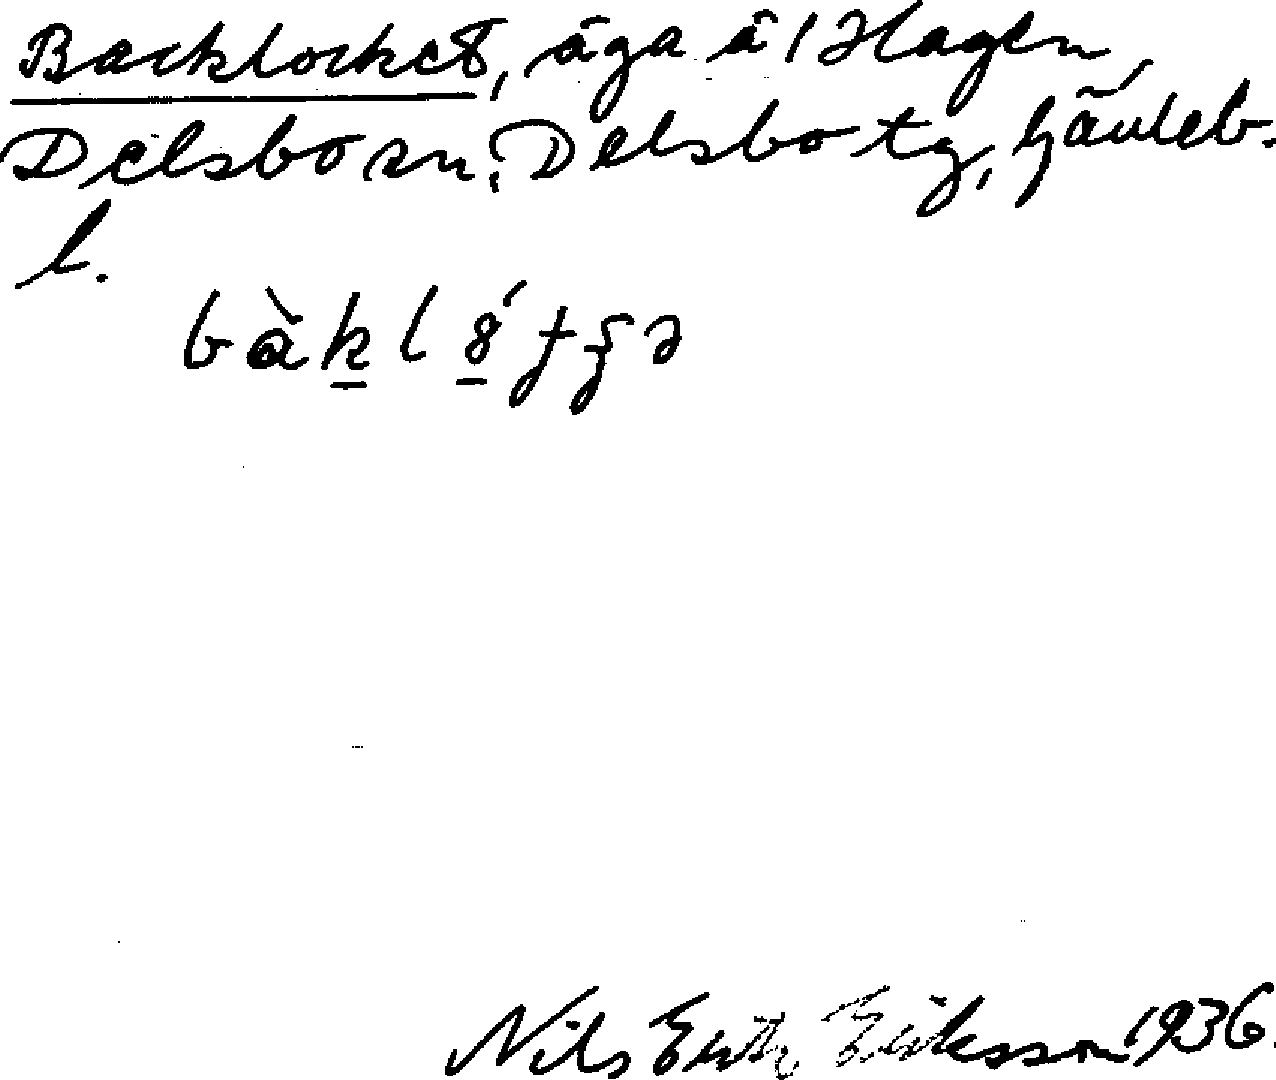 Backlocket, äga å 1 Hagen
Delsbo sn, Delsbo tg, Gävleb.
l.
bàkló̱
Nils Erik Eriksson 1936.